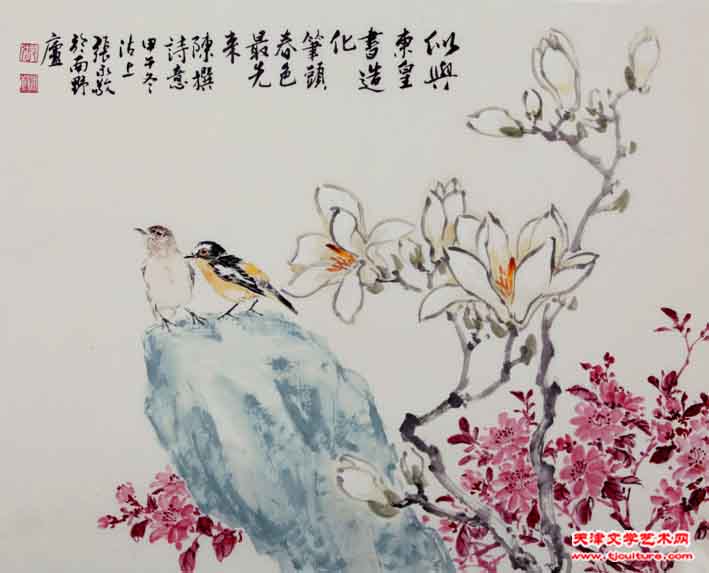 似與
東皇
書造
化
筆頭
春色
最先
来
陳撰
詩意
甲午冬
沽上
張永敬
於南野
廬
天津文学艺术网
www.tjculture.com